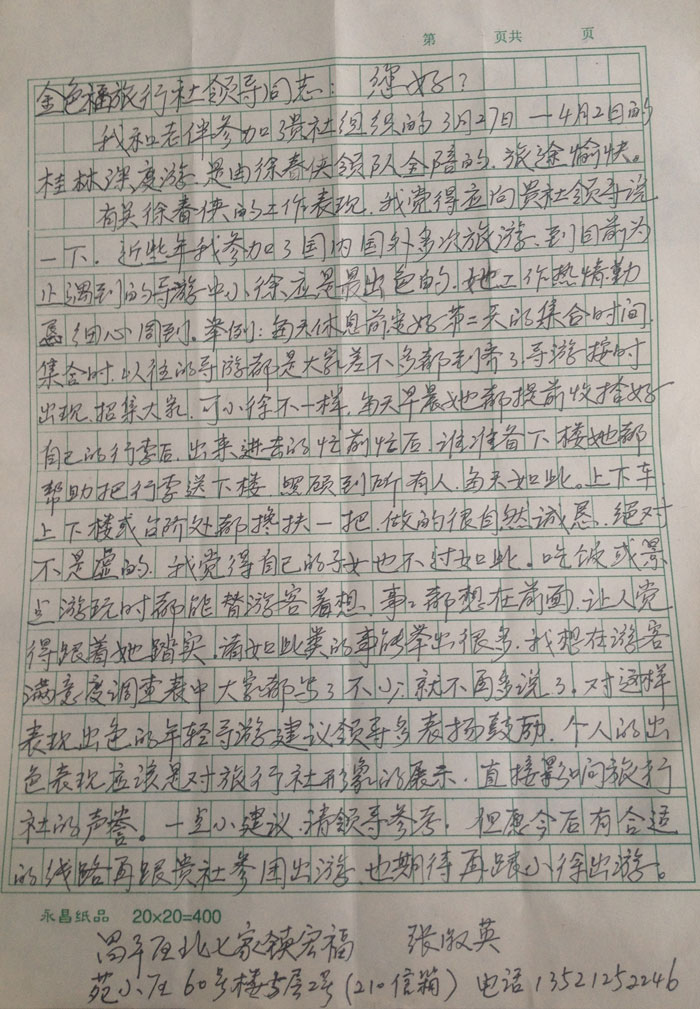 第 页共 页
金色福旅行社领导同志: 您好?
我和老伴参加贵社组织的3月27日—4月2日的
桂林深度游.是由徐春侠领队全陪的.旅途愉快。
有关徐春侠的工作表现.我觉得应向贵社领导说
一下.近些年我参加了国内国外多次旅游、到目前为
止遇到的导游中小徐应是最出色的.她工作热情勤
恳细心周到。举例:每天休息前定好第二天的集合时间.
集合时.以往的导游都是大家差不多都到齐了.导游按时
出现.招集大家.可小徐不一样.每天早晨她都提前收拾好
自己的行李后.出来进去的忙前忙后.谁准备下楼她都
帮助把行李送下楼.照顾到所有人.每天如此。上下车
上下楼或台阶处都搀扶一把.做的很自然诚恳.绝对
不是虚的.我觉得自己的子女也不过如此。吃饭或景
点游玩时都能替游客着想、事:都想在前面.让人觉
得跟着她踏实.诸如此类的事能举出很多.我想在游客
满意度调查表中大家都写了不少.就不再多说了。对这样
表现出色的年轻导游建议领导多表扬鼓励.个人的出
色表现应该是对旅行社形象的展示.直接影响旅行
社的声誉。一点小建议.请领导参考.但愿今后有合适
的线路再跟贵社参团出游、也期待再跟小徐出游。
永昌纸品 20×20=400
昌平区北七家镇宏福 张淑英
苑小区60号楼5层2号(210信箱) 电话13521252246